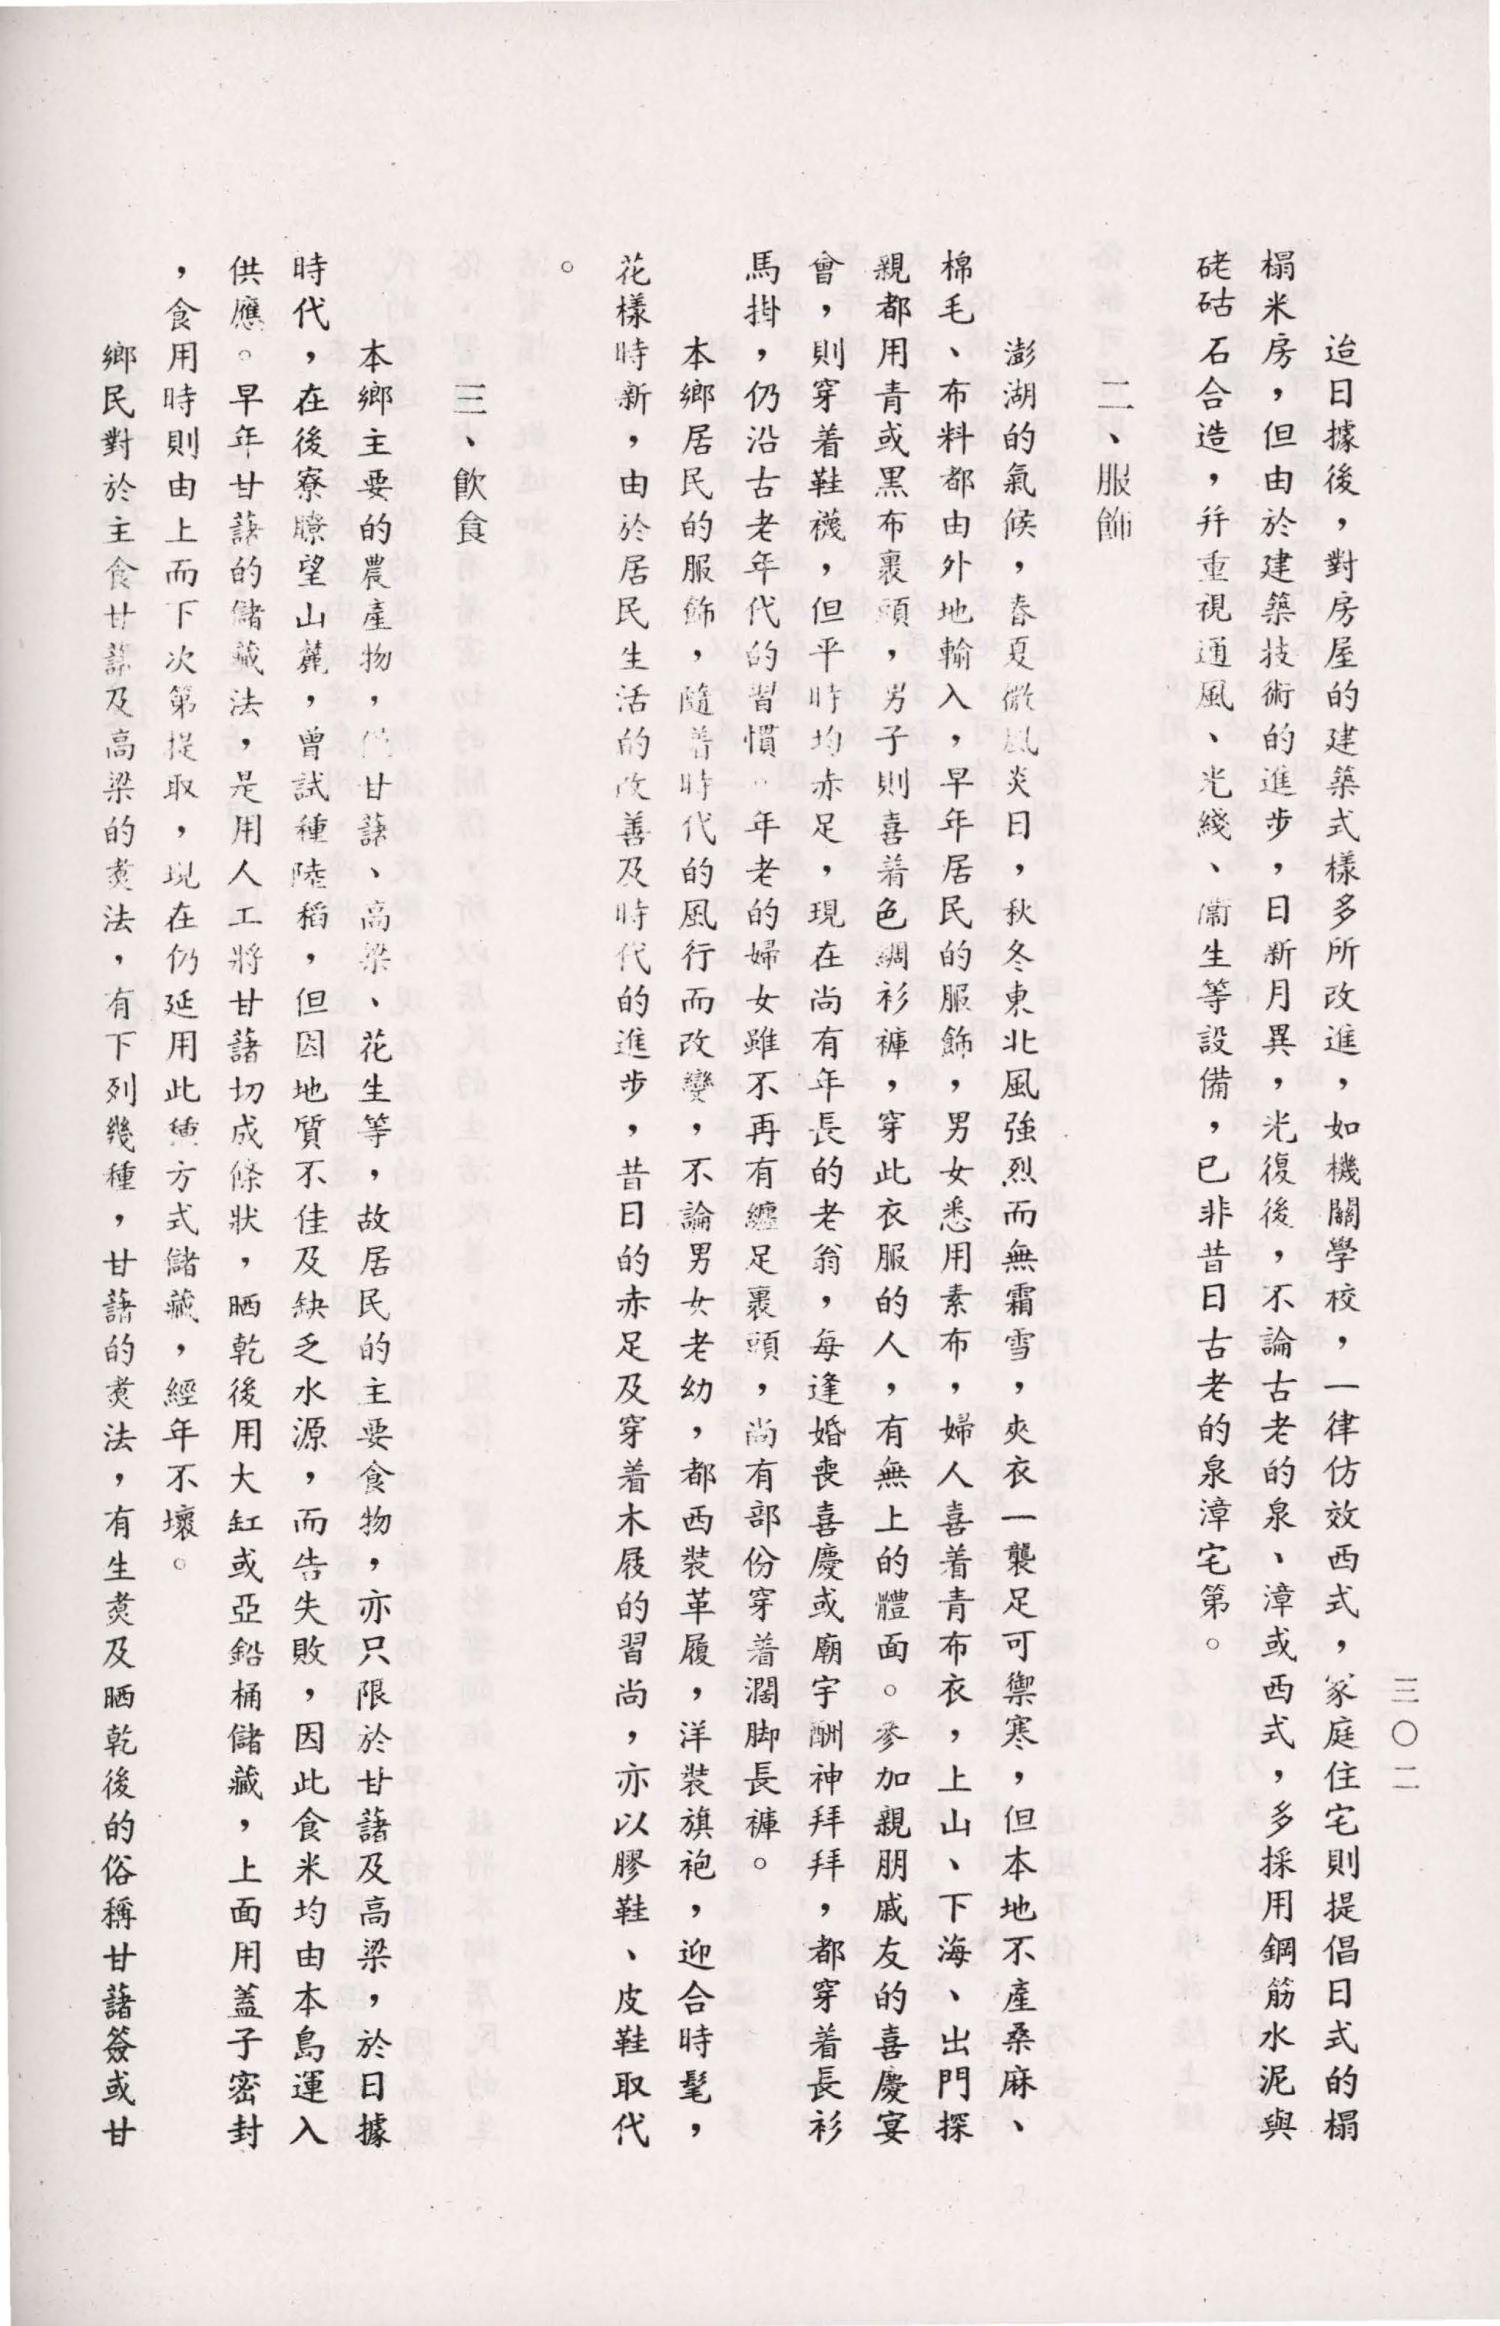 三〇二
迨日據後，對房屋的建築式樣多所改進，如機關學校，一律仿效西式，家庭住宅則提倡日式的榻
榻米房，但由於建築技術的進步，日新月異，光復後，不論古老的泉、漳或西式，多採用鋼筋水泥與
硓𥑮石合造，幷重視通風、光綫、衞生等設備，已非昔日古老的泉漳宅第。
二、服飾
澎湖的氣候，春夏微風炎日，秋冬東北風強烈而無霜雪，夾衣一襲足可禦寒，但本地不產桑麻、
棉毛、布料都由外地輸入，早年居民的服飾，男女悉用素布，婦人喜着青布衣，上山、下海、出門探
親都用青或黑布裹頭，男子則喜着色綢衫褲，穿此衣服的人，有無上的體面。參加親朋戚友的喜慶宴
會，則穿着鞋襪，但平時均赤足，現在尚有年長的老翁，每逢婚喪喜慶或廟宇酬神拜拜，都穿着長衫
馬掛，仍沿古老年代的習慣。年老的婦女雖不再有纏足裹頭，尚有部份穿着濶脚長褲。
本鄉居民的服飾，隨着時代的風行而改變，不論男女老幼，都西裝革履，洋裝旗袍，迎合時髦，
花樣時新，由於居民生活的改善及時代的進步，昔日的赤足及穿着木屐的習尚，亦以膠鞋、皮鞋取代
。
三、飲食
本鄉主要的農產物，僅甘藷、高梁、花生等，故居民的主要食物，亦只限於甘藷及高梁，於日據
時代，在後寮瞭望山麓，曾試種陸稻，但因地質不佳及缺乏水源，而告失敗，因此食米均由本島運入
供應。早年甘藷的儲藏法，是用人工將甘藷切成條狀，晒乾後用大缸或亞鉛桶儲藏，上面用蓋子密封
，食用時則由上而下次第提取，現在仍延用此種方式儲藏，經年不壞。
鄉民對於主食甘藷及高梁的煑法，有下列幾種，甘藷的煑法，有生煑及晒乾後的俗稱甘藷簽或甘